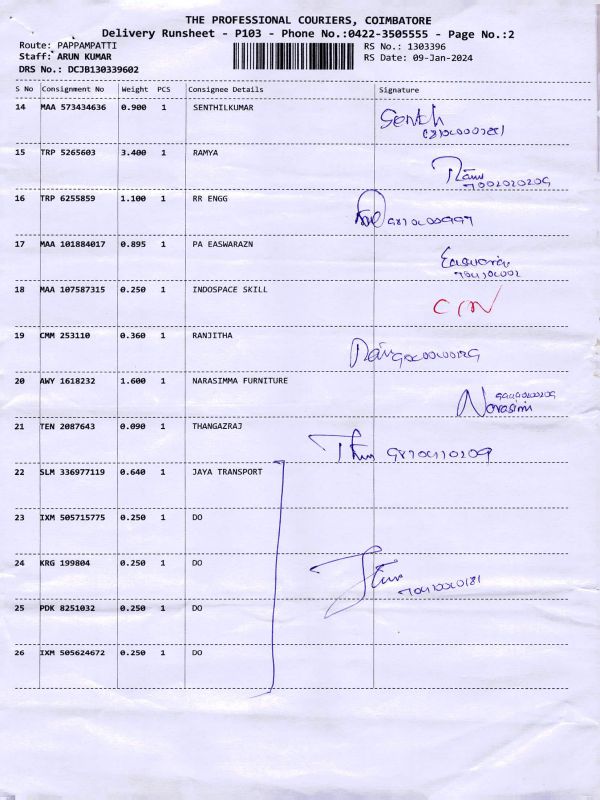 THE PROFESSIONAL COURIERS, COIMBATORE
Delivery Runsheet - P103 - Phone No.:0422-3505555 - Page No.:2
Route: PAPPAMPATTI RS No.: 1303396
Staff: ARUN KUMAR RS Date: 09-Jan-2024
DRS No.: DCJB130339602
S No Consignment No Weight PCS Consignee Details Signature
14 MAA 573434636 0.900 1 SENTHILKUMAR
15 TRP 5265603 3.400 1 RAMYA
16 TRP 6255859 1.100 1 RR ENGG
17 MAA 101884017 0.895 1 PA EASWARAZN
18 MAA 107587315 0.250 1 INDOSPACE SKILL
19 CMM 253110 0.360 1 RANJITHA
20 AWY 1618232 1.600 1 NARASIMMA FURNITURE
21 TEN 2087643 0.090 1 THANGAZRAJ
22 SLM 336977119 0.640 1 JAYA TRANSPORT
23 IXM 505715775 0.250 1 DO
24 KRG 199804 0.250 1 DO
25 PDK 8251032 0.250 1 DO
26 IXM 505624672 0.250 1 DO